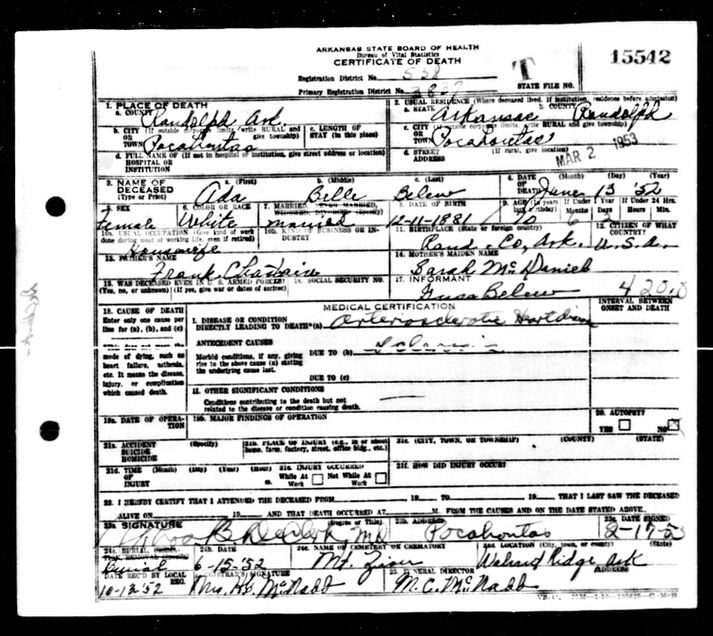 ARKANSAS STATE BOARD OF HEALTH
Bureau of Vital Statistics
CERTIFICATE OF DEATH
15542
Registration District No. 558
T
STATE FILE NO.
Primary Registration District No.
1. PLACE OF DEATH
a. COUNTY Randolph Ark.
2. USUAL RESIDENCE (Where deceased lived. If institution, residence before admission)
a. STATE Arkansas b. COUNTY Randolph
b. CITY (If outside corporate limits, write RURAL and give township) OR TOWN Pocahontas
c. LENGTH OF STAY (in this place)
c. CITY (If outside corporate limits, write RURAL and give township) OR TOWN Pocahontas
d. FULL NAME OF (If not in hospital or institution, give street address or location) HOSPITAL OR INSTITUTION
d. STREET ADDRESS (If rural, give location)
MAR 2 1953
3. NAME OF DECEASED (Type or Print)
a. (First) Ada b. (Middle) Belle c. (Last) Belew
4. DATE OF DEATH (Month) (Day) (Year) June 13 '52
5. SEX Female
6. COLOR OR RACE White
7. MARRIED, NEVER MARRIED, WIDOWED, DIVORCED (Specify) married
8. DATE OF BIRTH 12-11-1881
9. AGE (In years last birthday) If Under 1 Year Months Days If Under 24 Hrs. Hours Min.
10a. USUAL OCCUPATION (Give kind of work done during most of working life, even if retired) Housewife
10b. KIND OF BUSINESS OR INDUSTRY
11. BIRTHPLACE (State or foreign country) Rand. Co, Ark.
12. CITIZEN OF WHAT COUNTRY? U.S.A.
13. FATHER'S NAME Frank Chastain
14. MOTHER'S MAIDEN NAME Sarah McDaniel
15. WAS DECEASED EVER IN U.S. ARMED FORCES? (Yes, no, or unknown) (If yes, give war or dates of service)
16. SOCIAL SECURITY NO.
17. INFORMANT Belew
4200
18. CAUSE OF DEATH
Enter only one cause per line for (a), (b), and (c)
MEDICAL CERTIFICATION
INTERVAL BETWEEN ONSET AND DEATH
I. DISEASE OR CONDITION DIRECTLY LEADING TO DEATH*(a) Arteriosclerotic Heart disease
ANTECEDENT CAUSES
mode of dying, such as heart failure, asthenia, etc. It means the disease, injury, or complication which caused death.
Morbid conditions, if any, giving rise to the above cause (a) stating the underlying cause last.
DUE TO (b)
DUE TO (c)
II. OTHER SIGNIFICANT CONDITIONS
Conditions contributing to the death but not related to the disease or condition causing death.
19a. DATE OF OPERATION
19b. MAJOR FINDINGS OF OPERATION
20. AUTOPSY
YES NO
21a. ACCIDENT SUICIDE HOMICIDE (Specify)
21b. PLACE OF INJURY (e.g., in or about home, farm, factory, street, office bldg., etc.)
21c. (CITY, TOWN, OR TOWNSHIP) (COUNTY) (STATE)
21d. TIME OF INJURY (Month) (Day) (Year) (Hour)
21e. INJURY OCCURRED While At Work Not While At Work
21f. HOW DID INJURY OCCUR?
22. I HEREBY CERTIFY THAT I ATTENDED THE DECEASED FROM 19 TO 19 THAT I LAST SAW THE DECEASED
ALIVE ON 19 AND THAT DEATH OCCURRED AT M. FROM THE CAUSES AND ON THE DATE STATED ABOVE.
23a. SIGNATURE (Degree or Title) MD
23b. Pocahontas
23c. DATE SIGNED 2-17-53
24a. BURIAL Burial
24b. DATE 6-15-'52
24c. NAME OF CEMETERY OR CREMATORY Mt. Zion
24d. LOCATION (City, town, or county) (State) Walnut Ridge Ark
DATE REC'D BY LOCAL REG. 10-13-'52
REGISTRAR'S SIGNATURE Mrs. McNabb
25. FUNERAL DIRECTOR ADDRESS M.C. McNabb